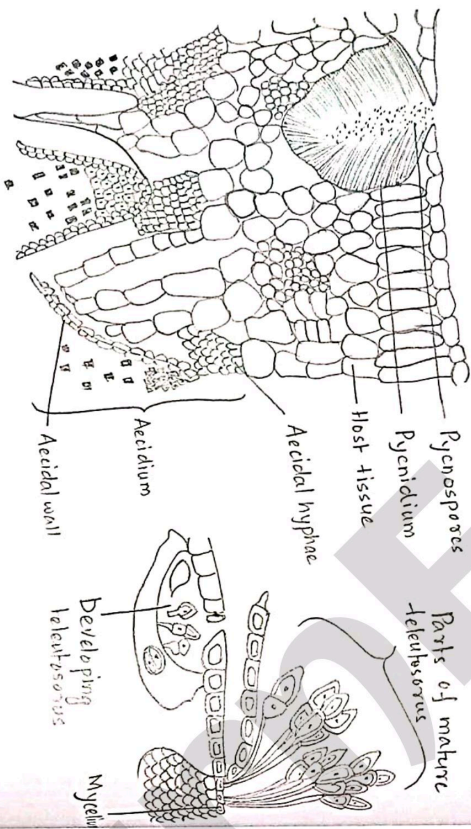 Pycnospores
Pycnidium
Host tissue
Aecidal hyphae
Aecidium
Aecidal wall
Parts of mature
teleutosorus
Developing
teleutosorus